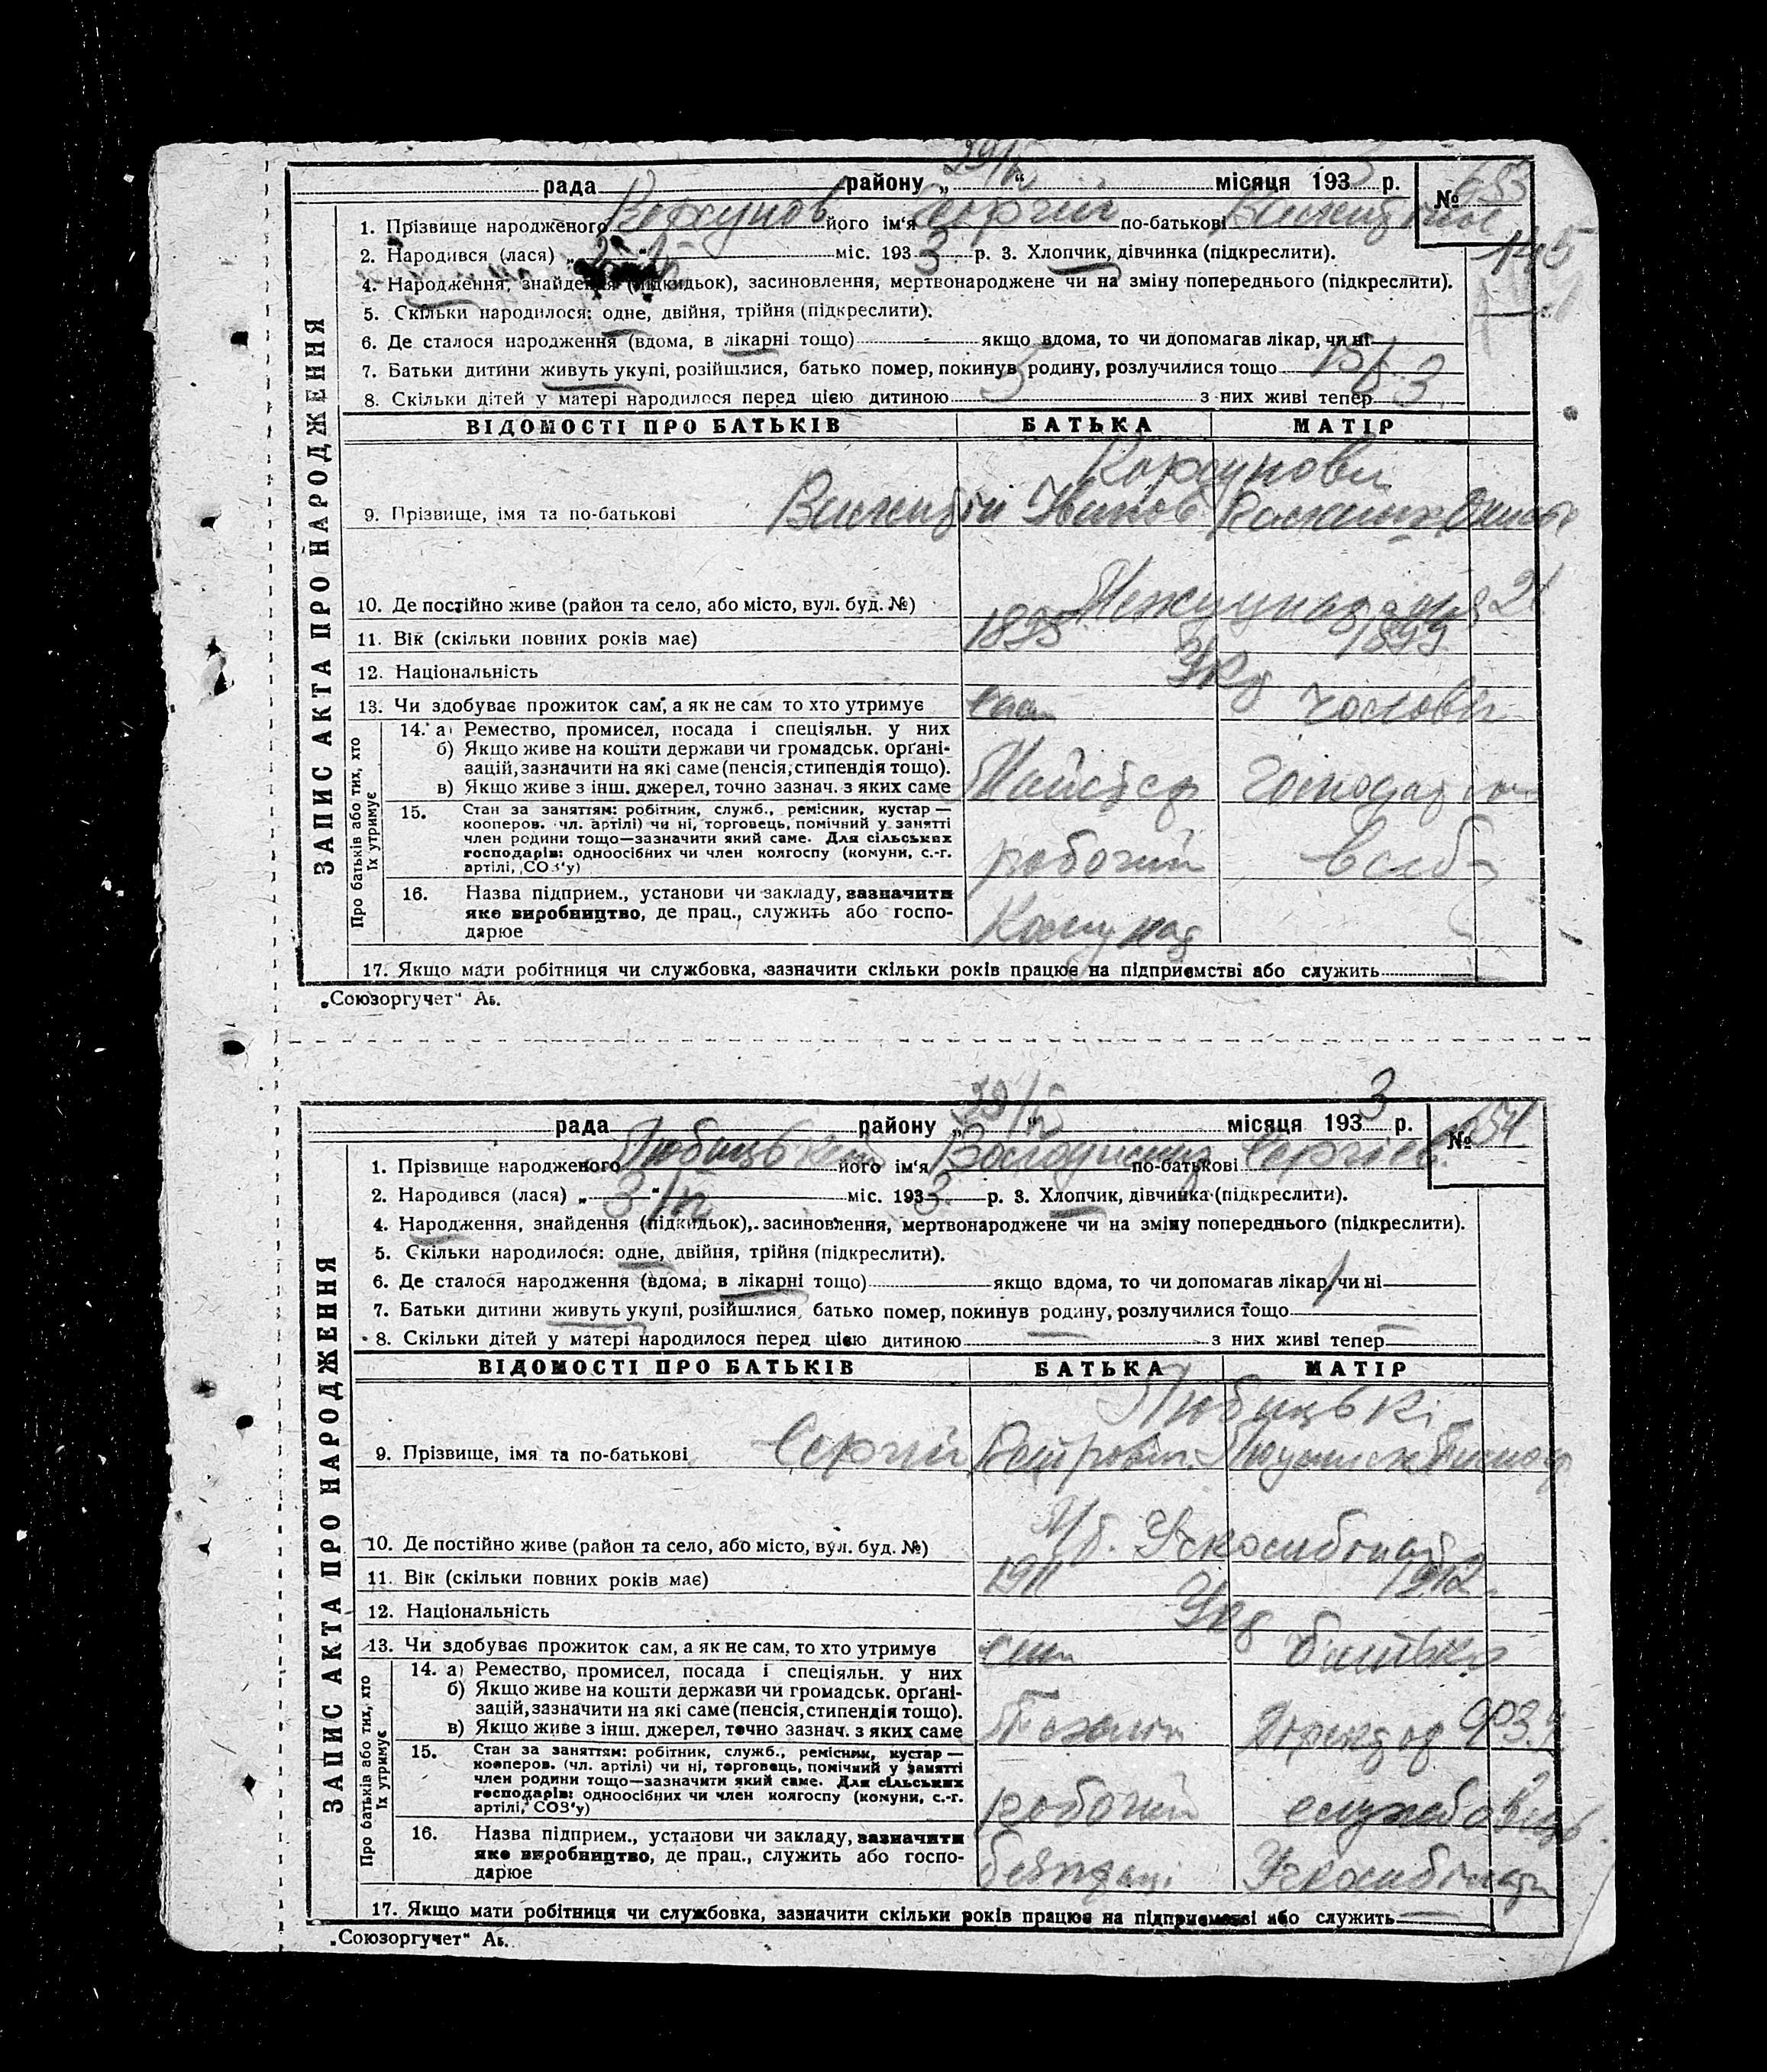 рада района „ 29/ “ місяця 193 3 р. № 653
1. Прізвище народженого його ім‘я Георгій по-батькові
2. Народився (лася) „ “ міс. 193 3 р. 3. Хлопчик, дівчинка (підкреслити). 145
4. Народження, знайдення (підкидьок), засиновлення, мертвонароджене чи на зміну попереднього (підкреслити).
5. Скільки народилося: одне, двійня, трійня (підкреслити).
6. Де сталося народження (вдома, в лікарні тощо) - якщо вдома, то чи допомагав лікар, чи ні
7. Батьки дитини живуть укупі, розійшлися, батько помер, покинув родину, розлучилися тощо
8. Скільки дітей у матері народилося перед цією дитиною 5 з них живі тепер 3
ЗАПИС АКТА ПРО НАРОДЖЕННЯ
ВІДОМОСТІ ПРО БАТЬКІВ БАТЬКА МАТІР
9. Прізвище, імя та по-батькові Іванов
10. Де постійно живе (район та село, або місто, вул. буд. №) 21
11. Вік (скільки повних років має) 1895 1899
12. Національність Укр
13. Чи здобуває прожиток сам, а як не сам то хто утримує сам чоловік
Про батьків або тих, хто їх утримує
14. а) Ремество, промисел, посада і спеціяльн. у них
б) Якщо живе на кошти держави чи громадськ. орґані-
зацій, зазначити на які саме (пенсія, стипендія тощо).
в) Якщо живе з інш. джерел, точно зазнач. з яких саме Майстер Господар
15. Стан за заняттям: робітник, служб., ремісник, кустар —
кооперов. чл. артілі) чи ні, торговець, помічний у занятті
член родини тощо—зазначити який саме. Для сільських
господарів: одноосібних чи член колгоспу (комуни, с.-г.
артілі, СОЗ‘у) робочий
16. Назва підприєм., установи чи закладу, зазначити
яке виробництво, де прац., служить або госпо-
дарює
17. Якщо мати робітниця чи службовка, зазначити скільки років працює на підприємстві або служить
„Союзоргучет“ Аь.
рада району „ 29/ “ місяця 193 3 р. № 654
1. Прізвище народженого Любицький його ім‘я Володимир по-батькові Сергіев.
2. Народився (лася) „ 3/ “ міс. 193 3 р. 3. Хлопчик, дівчинка (підкреслити).
4. Народження, знайдення (підкидьок), засиновлення, мертвонароджене чи на зміну попереднього (підкреслити).
5. Скільки народилося: одне, двійня, трійня (підкреслити).
6. Де сталося народження (вдома, в лікарні тощо) якщо вдома, то чи допомагав лікар, чи ні
7. Батьки дитини живуть укупі, розійшлися, батько помер, покинув родину, розлучилися тощо
8. Скільки дітей у матері народилося перед цією дитиною — з них живі тепер —
ЗАПИС АКТА ПРО НАРОДЖЕННЯ
ВІДОМОСТІ ПРО БАТЬКІВ БАТЬКА МАТІР
Любицькі
9. Прізвище, імя та по-батькові Сергій Петрович
10. Де постійно живе (район та село, або місто, вул. буд. №)
11. Вік (скільки повних років має) 1911 1912
12. Національність Укр
13. Чи здобуває прожиток сам, а як не сам, то хто утримує сам батько
Про батьків або тих, хто їх утримує
14. а) Ремество, промисел, посада і спеціяльн. у них
б) Якщо живе на кошти держави чи громадськ. орґані-
зацій, зазначити на які саме (пенсія, стипендія тощо).
в) Якщо живе з інш. джерел, точно зазнач. з яких саме
15. Стан за заняттям: робітник, служб., ремісник, кустар —
кооперов. (чл. артілі) чи ні, торговець, помічний у занятті
член родини тощо—зазначити який саме. Для сільських
господарів: одноосібних чи член колгоспу (комуни, с.-г.
артілі, СОЗ‘у) робочий службовець
16. Назва підприєм., установи чи закладу, зазначити
яке виробництво, де прац., служить або госпо-
дарює
17. Якщо мати робітниця чи службовка, зазначити скільки років працює на підприємстві або служить
„Союзоргучет“ Аь.